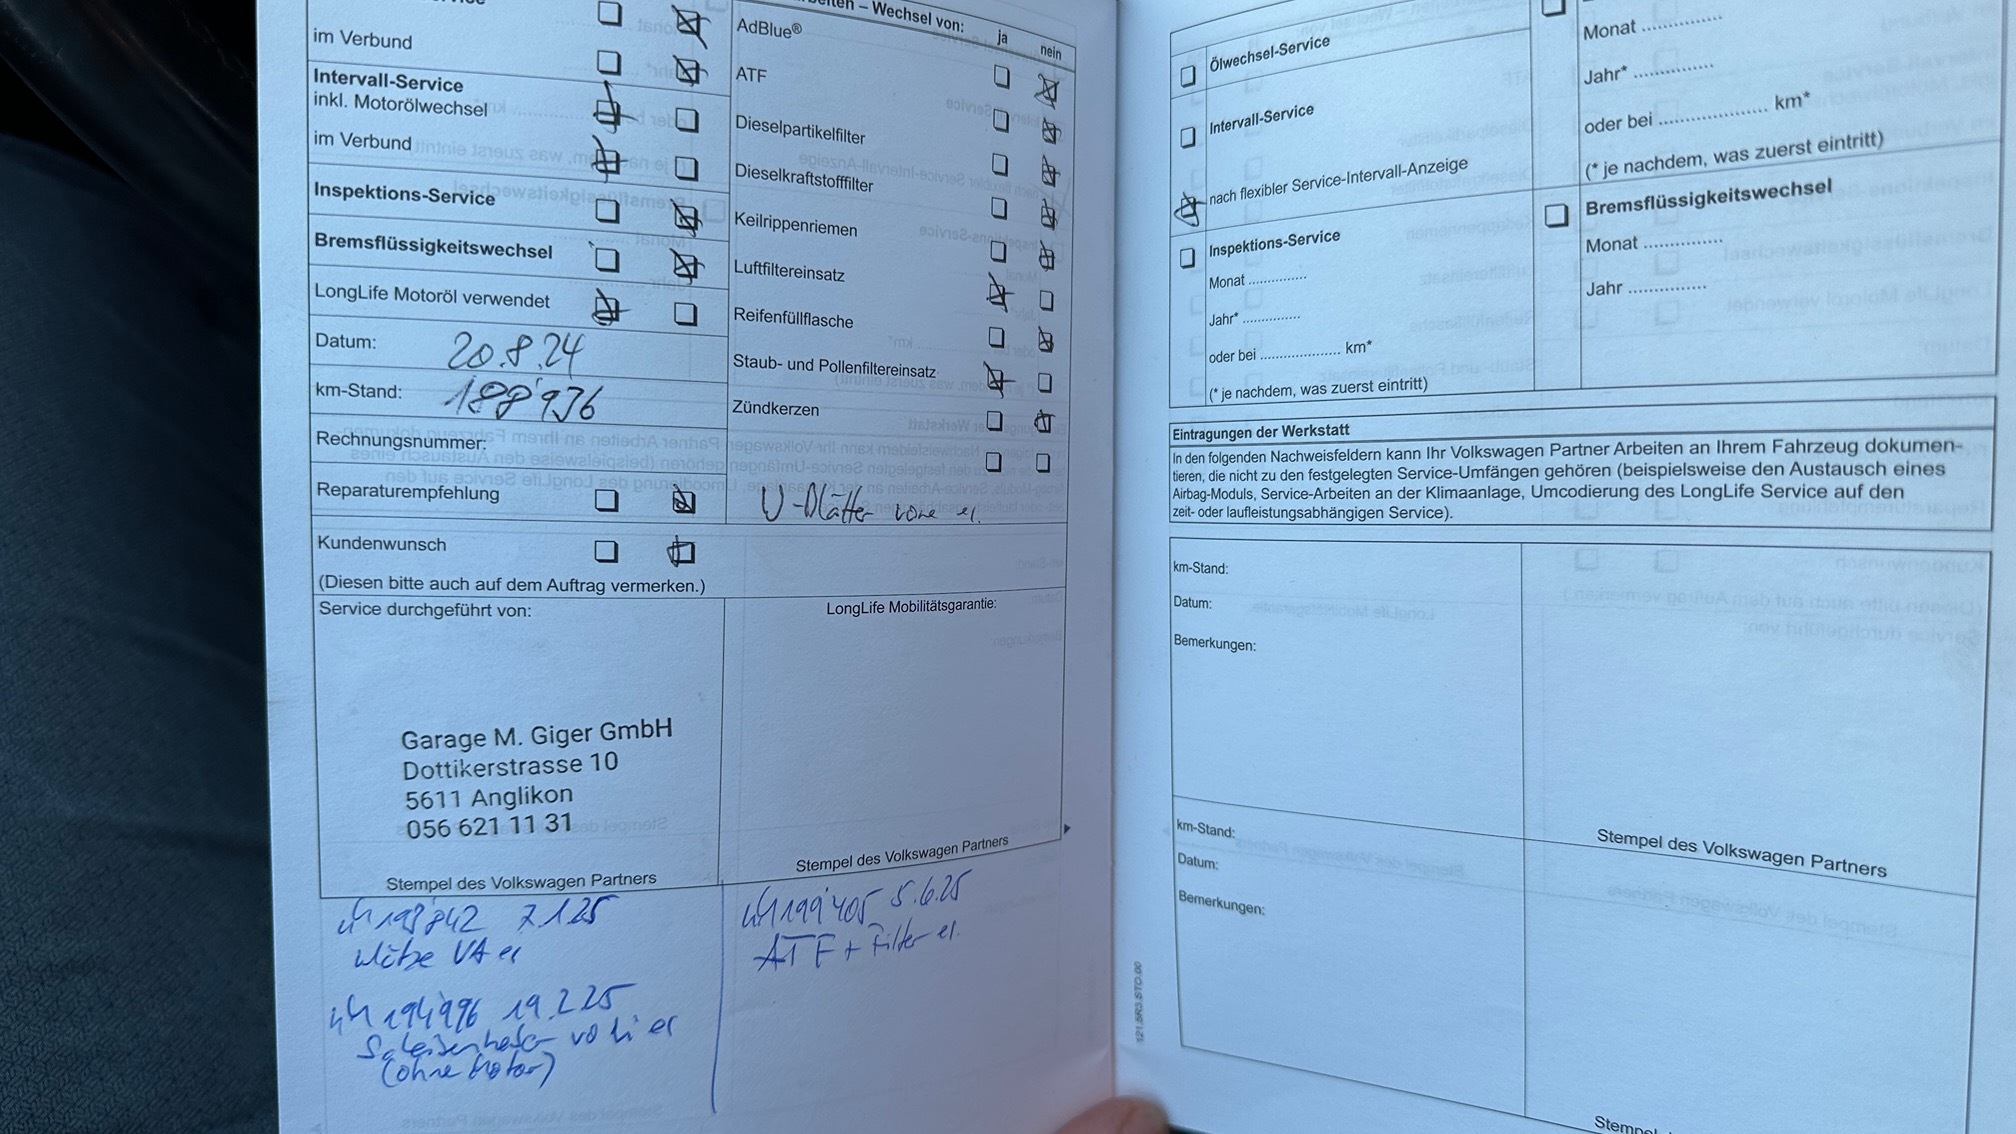 im Verbund
Intervall-Service
inkl. Motorölwechsel
im Verbund
Inspektions-Service
Bremsflüssigkeitswechsel
LongLife Motoröl verwendet
Datum: 20.8.24
km-Stand: 188'936
Rechnungsnummer:
Reparaturempfehlung
Kundenwunsch
(Diesen bitte auch auf dem Auftrag vermerken.)
Service durchgeführt von:
Garage M. Giger GmbH
Dottikerstrasse 10
5611 Anglikon
056 621 11 31
Stempel des Volkswagen Partners
198'842 7.1.25
VA er
194'996 19.2.25
vo hi er
(ohne Motor)
– Wechsel von:
ja nein
AdBlue®
ATF
Dieselpartikelfilter
Dieselkraftstofffilter
Keilrippenriemen
Luftfiltereinsatz
Reifenfüllflasche
Staub- und Pollenfiltereinsatz
Zündkerzen
W-Blätter vorne er.
LongLife Mobilitätsgarantie:
Stempel des Volkswagen Partners
199'405 5.6.25
ATF + Filter er.
Ölwechsel-Service
Intervall-Service
nach flexibler Service-Intervall-Anzeige
Inspektions-Service
Monat ..............
Jahr* ..............
oder bei .................... km*
(* je nachdem, was zuerst eintritt)
Monat ..............
Jahr* ..............
oder bei .................... km*
(* je nachdem, was zuerst eintritt)
Bremsflüssigkeitswechsel
Monat ..............
Jahr ..............
Eintragungen der Werkstatt
In den folgenden Nachweisfeldern kann Ihr Volkswagen Partner Arbeiten an Ihrem Fahrzeug dokumen-
tieren, die nicht zu den festgelegten Service-Umfängen gehören (beispielsweise den Austausch eines
Airbag-Moduls, Service-Arbeiten an der Klimaanlage, Umcodierung des LongLife Service auf den
zeit- oder laufleistungsabhängigen Service).
km-Stand:
Datum:
Bemerkungen:
Stempel des Volkswagen Partners
km-Stand:
Datum:
Bemerkungen:
121.5R3.STO.00